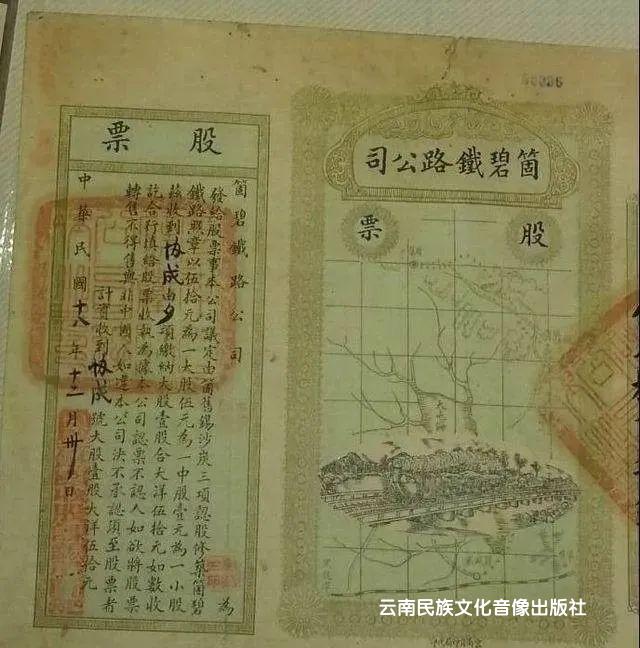 箇碧鐵路公司
股票
股票
箇碧鐵路公司 為
發給股票事本公司議定由箇舊錫沙炭三項認股修築箇碧
鐵路照章以伍拾元為一大股伍元為一中股壹元為一小股
茲收到協成由夕項繳納大股壹股合大洋伍拾元如數收
訖合行填給股票收執為據本公司認票不認人如欲將股票
轉售不得售與非中國人如違本公司決不承認須至股票者
計實收到協成號大股壹股大洋伍拾元
中華民國十八年十二月卅日
云南民族文化音像出版社